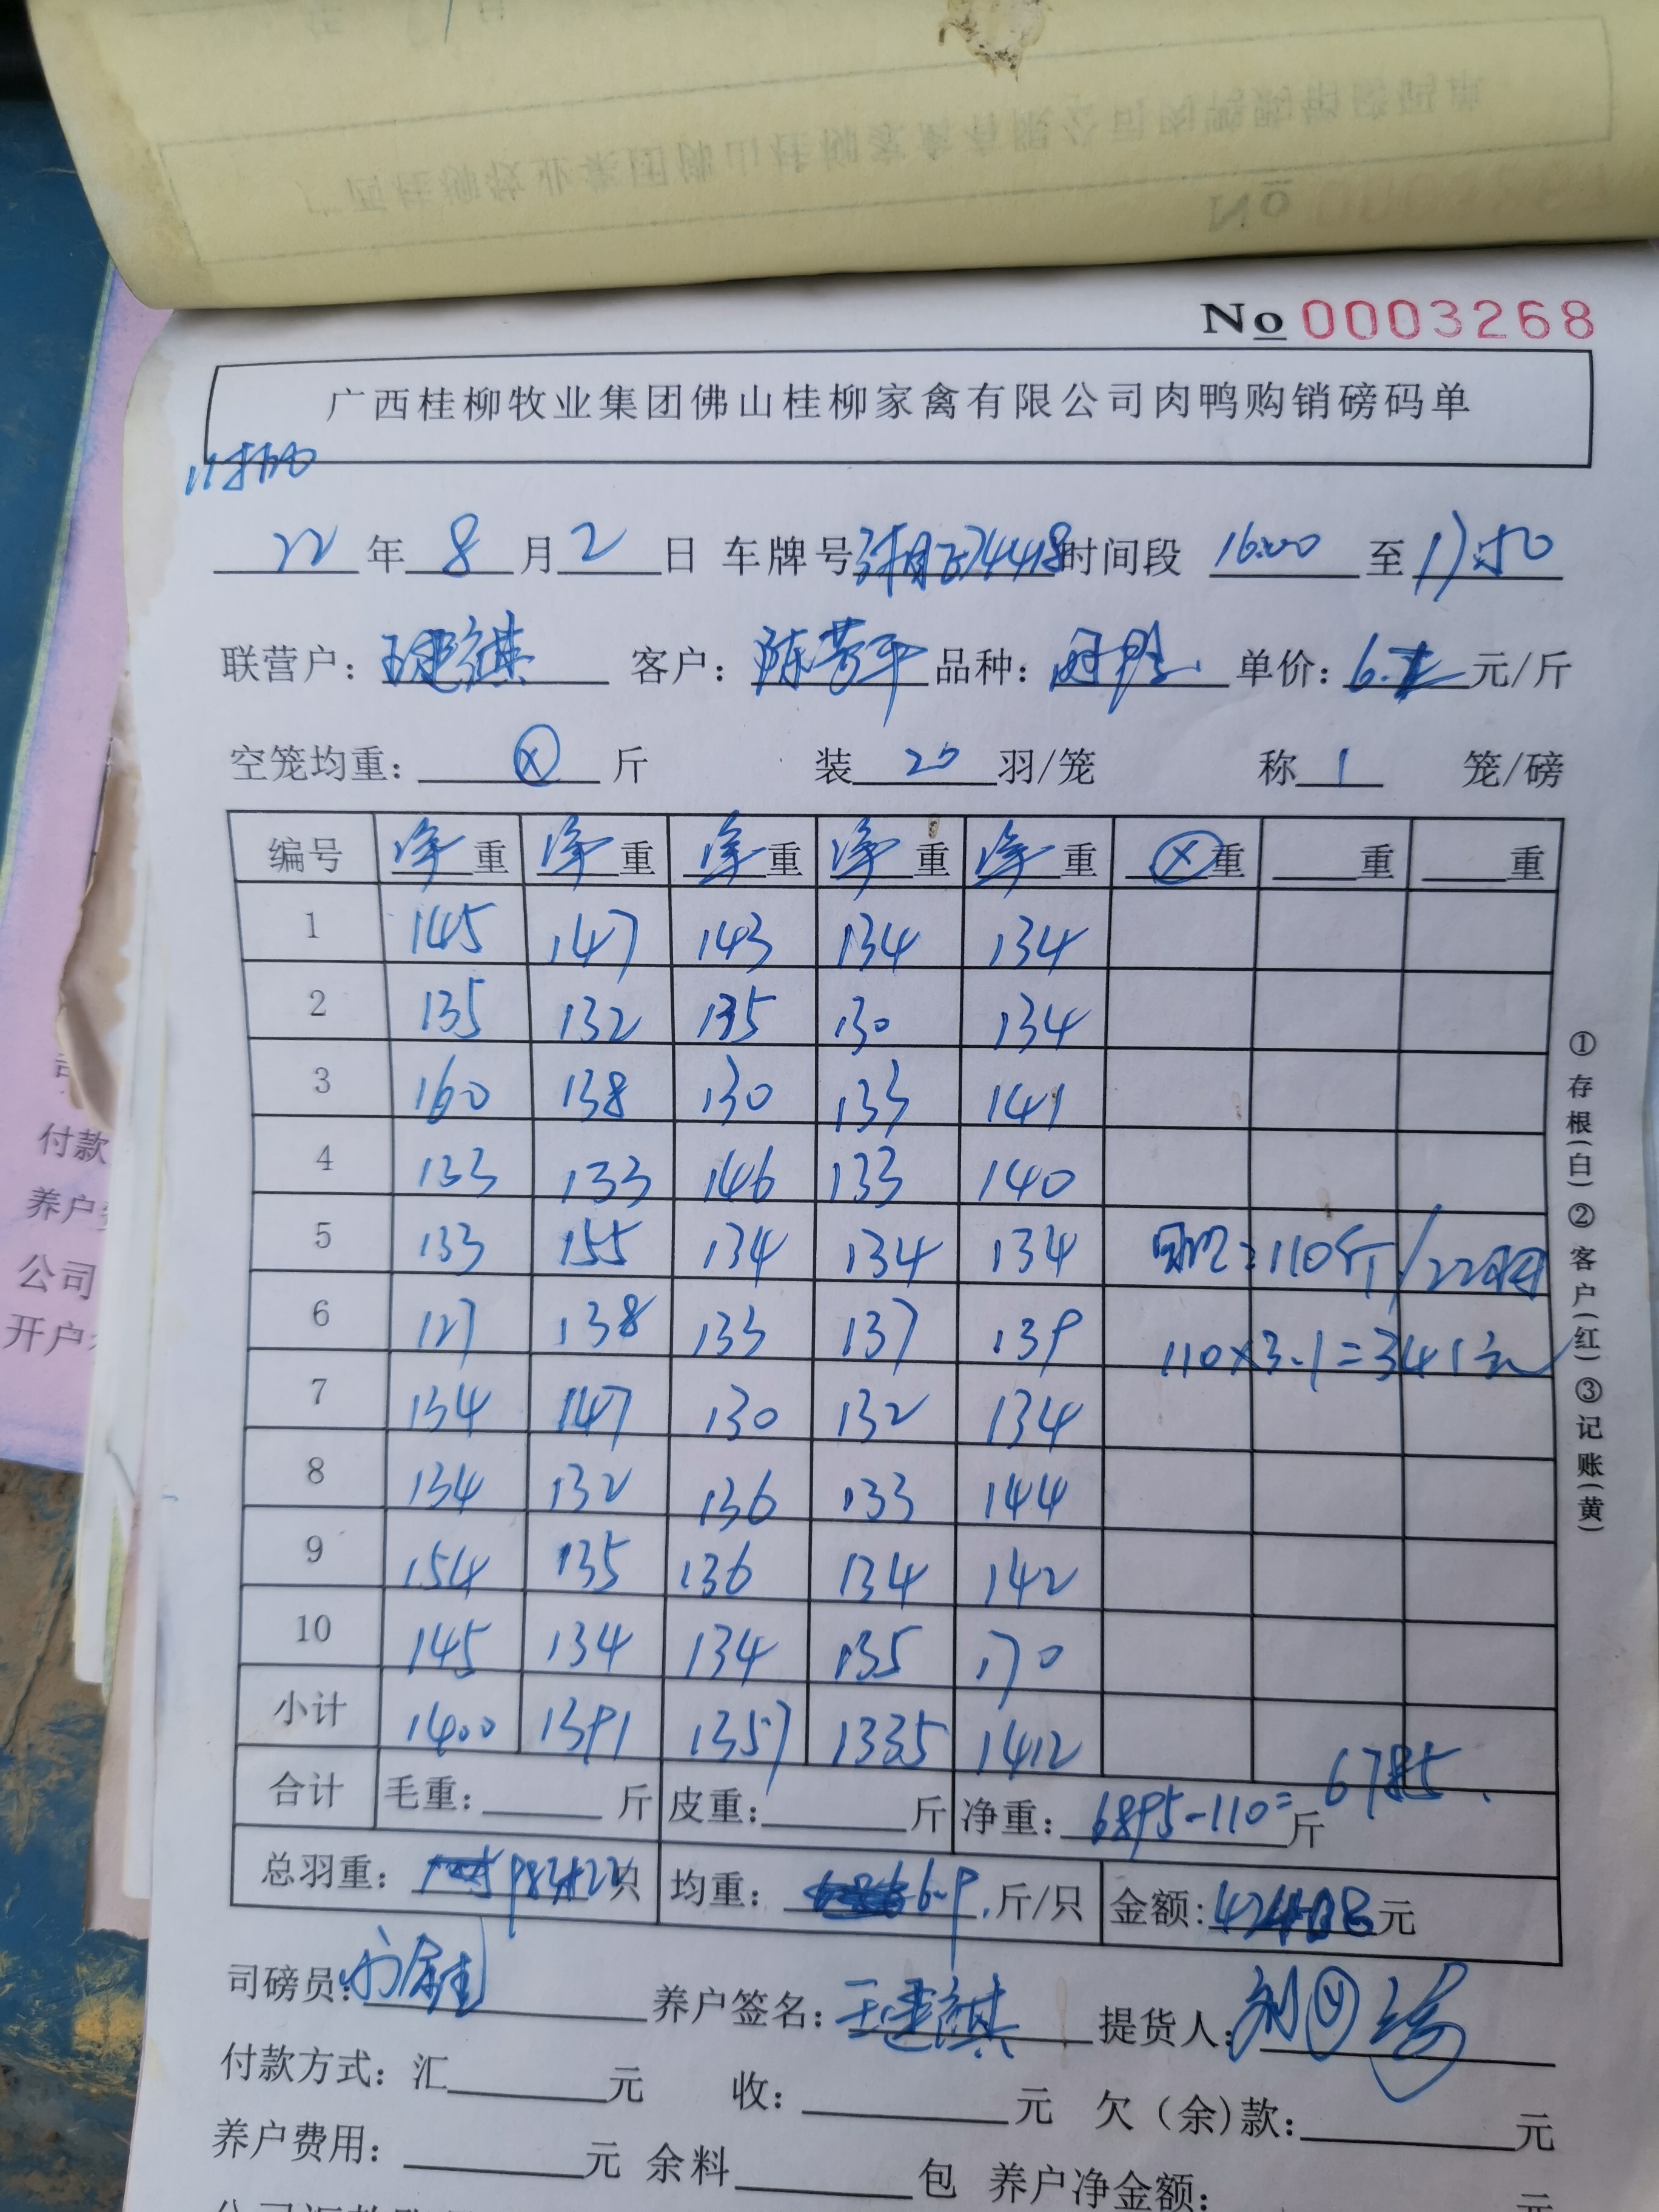 No 0003268
广西桂柳牧业集团佛山桂柳家禽有限公司肉鸭购销磅码单
22年8月2日 车牌号 时间段 16:00 至 17:50
联营户: 王建祺 客户: 陈芳平 品种: 单价: 6. 元/斤
空笼均重: ⓧ 斤 装 20 羽/笼 称 1 笼/磅
编号 净重 净重 净重 净重 净重 ⓧ重 重 重
1 145 147 143 134 134
2 135 132 135 130 134
3 160 138 130 133 141
4 133 133 146 133 140
5 133 155 134 134 134 =110斤/22羽
6 127 138 133 137 139 110×3.1=341元
7 134 147 130 132 134
8 134 132 136 133 144
9 154 135 136 134 142
10 145 134 134 135 170
小计 1400 1391 1357 1335 1412
合计 毛重: 斤 皮重: 斤 净重: 6895-110= 斤 6785
总羽重: 只 均重: 6.9 斤/只 金额: 元
司磅员: 养户签名: 王建祺 提货人:
付款方式: 汇 元 收: 元 欠(余)款: 元
养户费用: 元 余料 包 养户净金额: 元
①存根(白)②客户(红)③记账(黄)
付款
养户
公司
开户